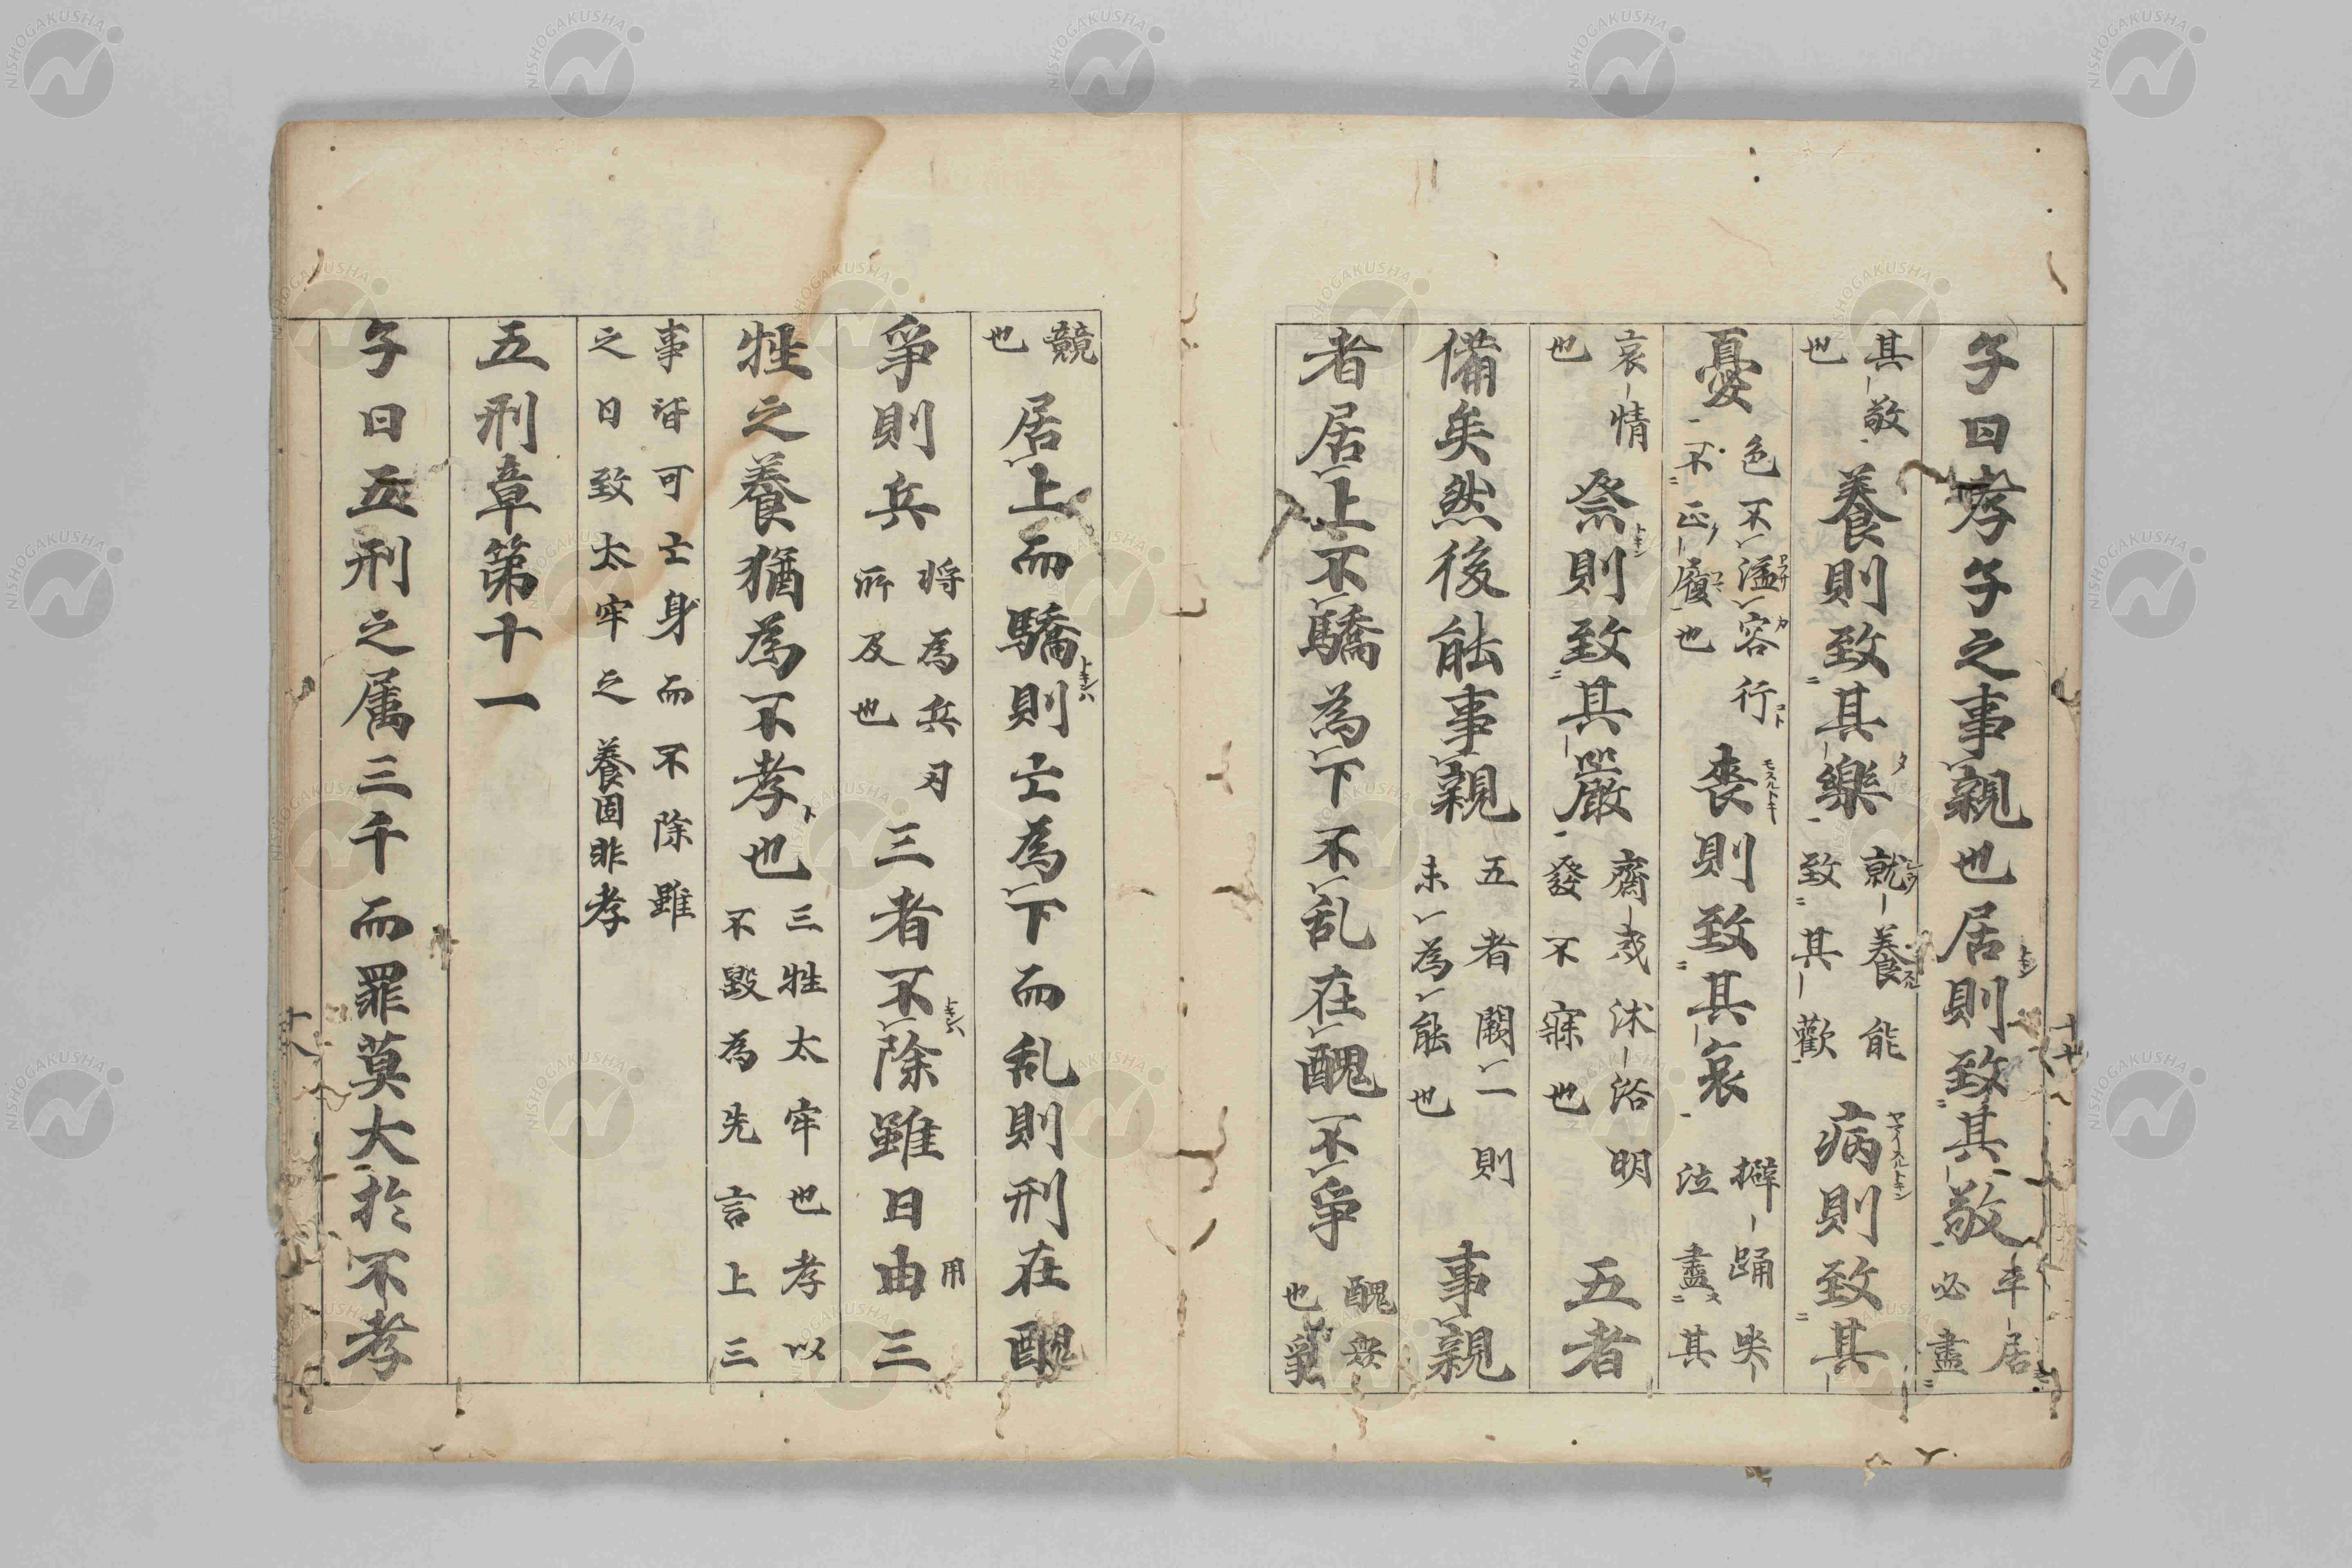 子曰孝子之事親也居則致其敬平居必盡
其敬也養則致其樂就養能致其歡病則致其
憂色不溢容行不正履也喪則致其哀擗踊哭泣盡其
哀情也祭則致其嚴齋戒沐浴明發不寐也五者
備矣然後能事親五者闕一則未為能也事親
者居上不驕為下不乱在醜不爭醜衆也爭
競也居上而驕則亡為下而乱則刑在醜
爭則兵将為兵刃所及也三者不除雖日由用三
牲之養猶為不孝也三牲太牢也孝以不毀為先言上三
事皆可亡身而不除雖之日致太牢之養固非孝
五刑章第十一
子曰五刑之属三千而罪莫大於不孝
NISHOGAKUSHA